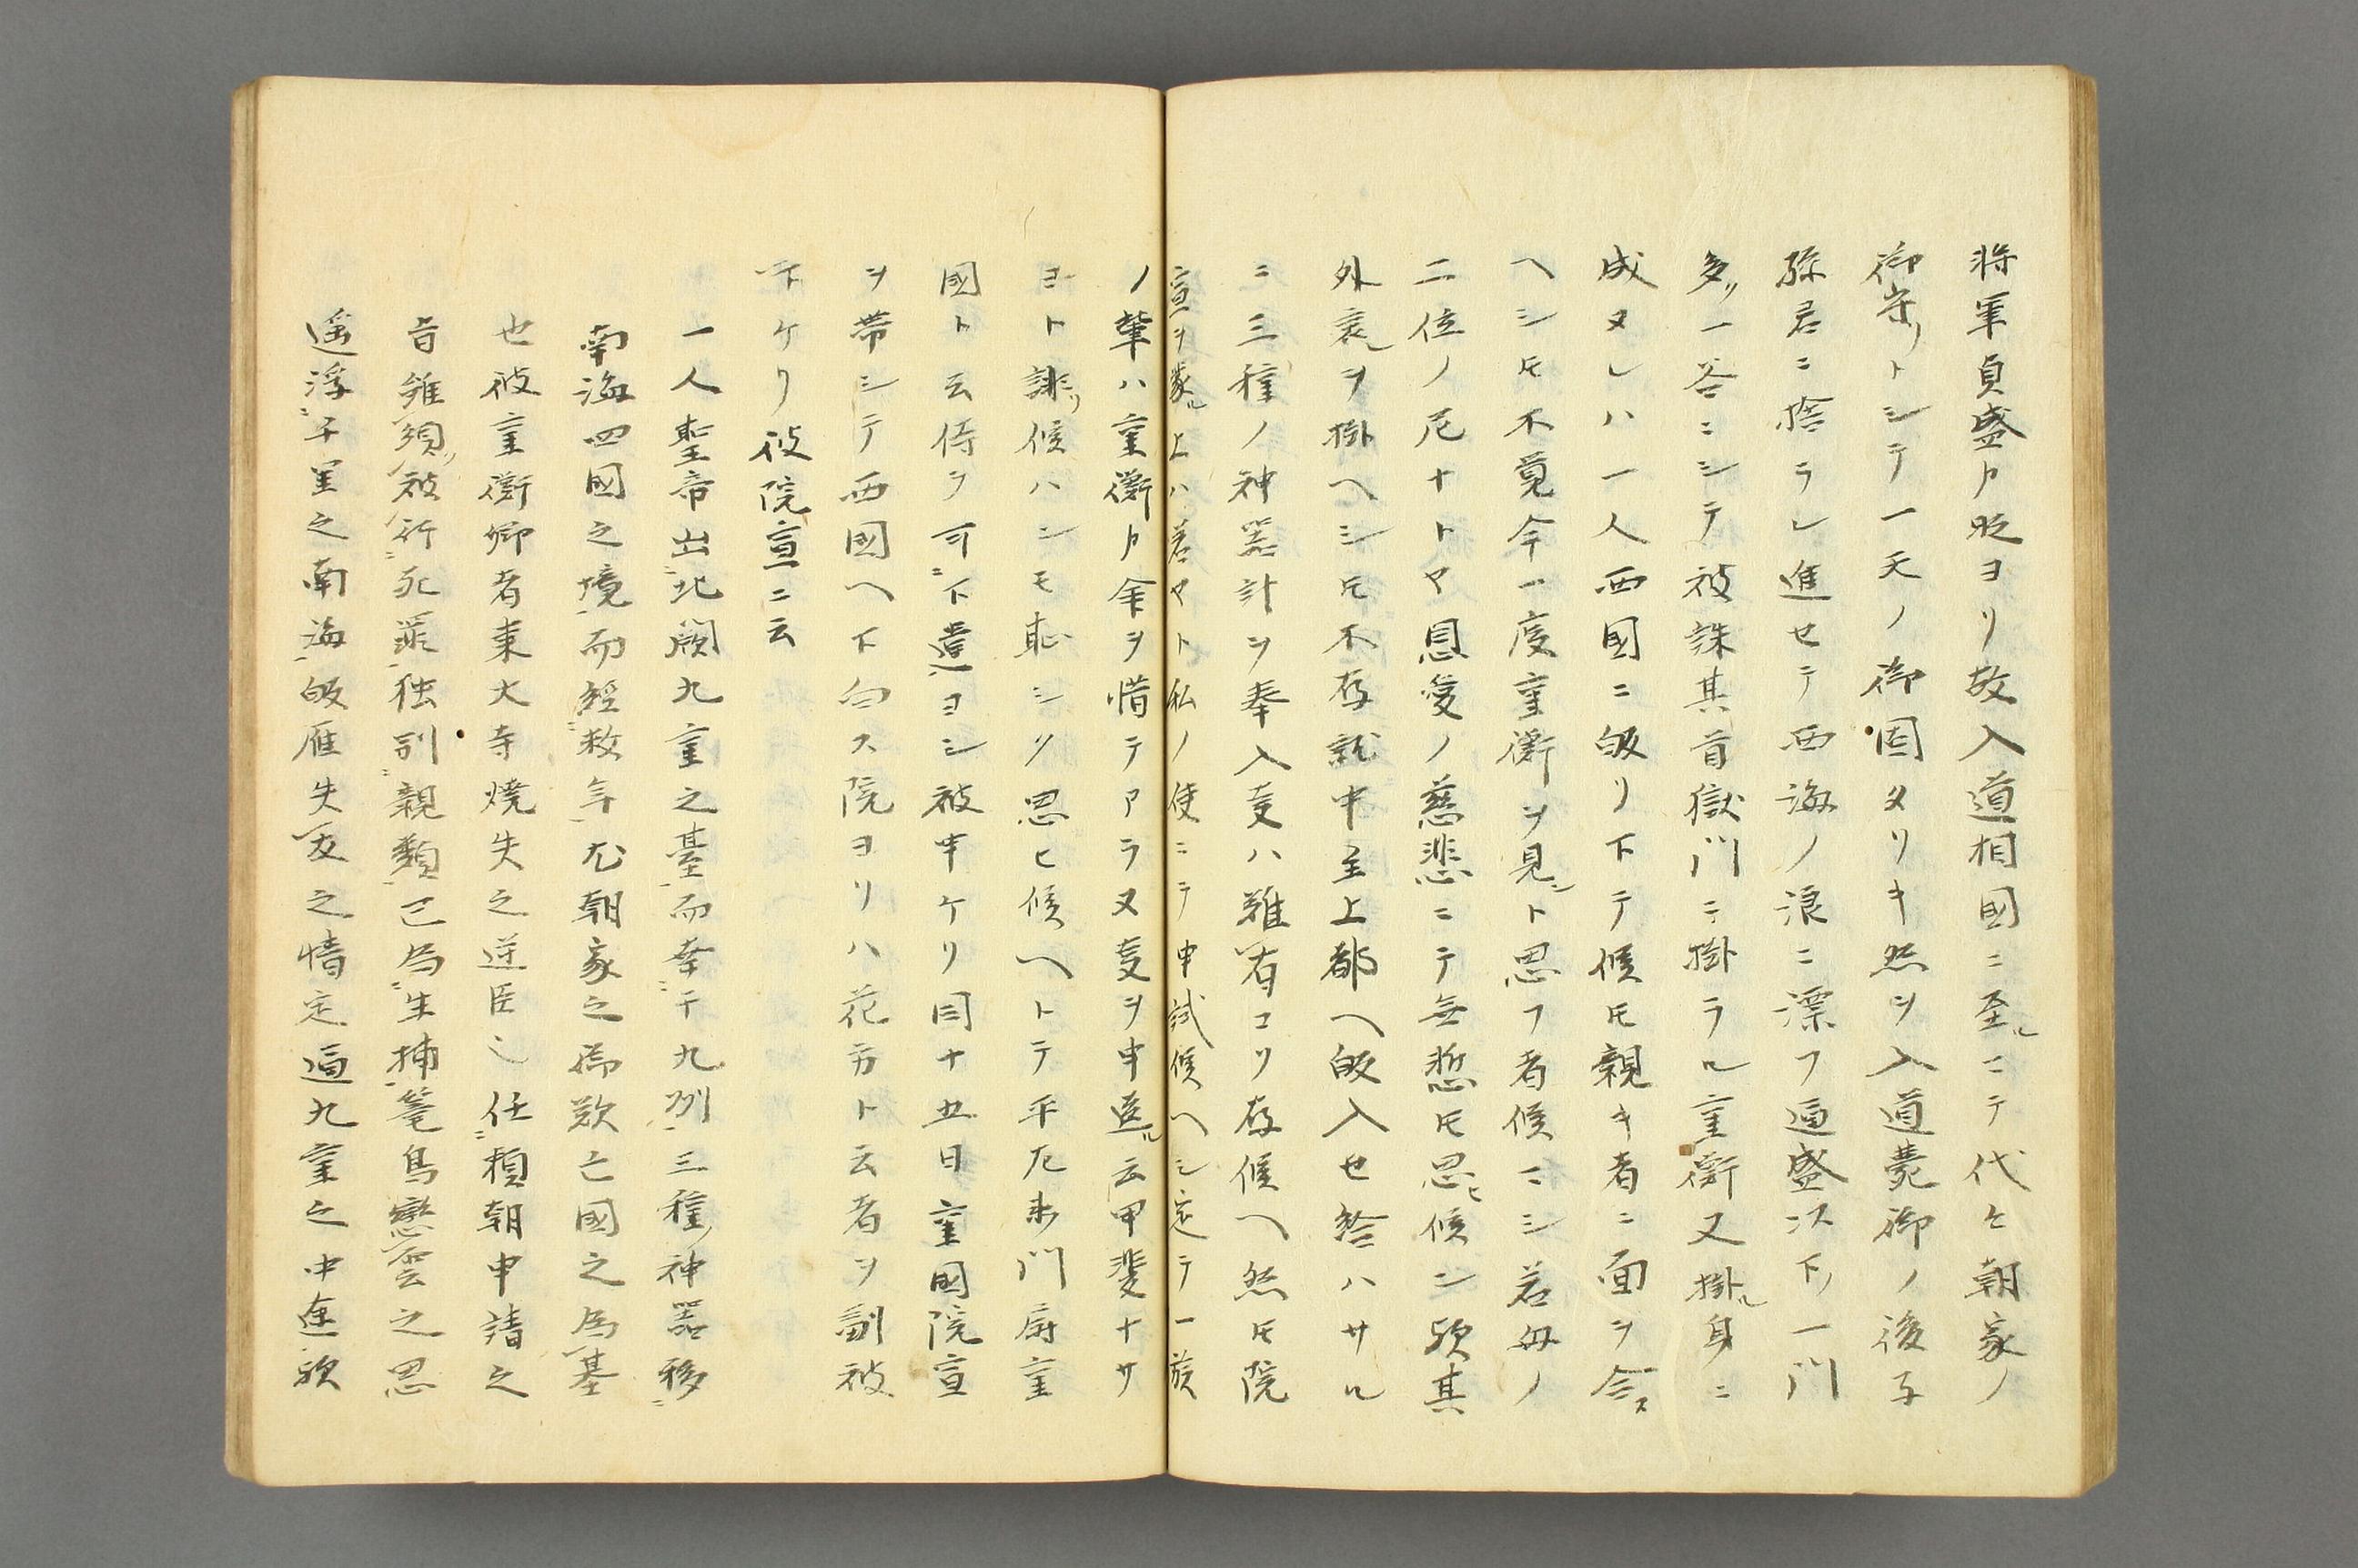 将軍貞盛ト昵ヨリ故入道相國ニ至ルニテ代々朝家ノ
御守リトシテ一天ノ御固タリキ然ヲ入道薨御ノ後子
孫君ニ捨ラレ進セテ西海ノ浪ニ漂フ通盛以下ノ一門
多ク一谷ニシテ被誅其首獄門ニ掛ラル重衡又掛ル身ニ
成ヌレハ一人西國ニ皈リ下テ候トモ親キ者ニ面ヲ合ス
ヘシトモ不覚今一度重衡ヲ見ント思フ者候ニシ若母ノ
二位ノ尼ナトヤ恩愛ノ慈悲ニテ無慙トモ思ヒ候ン欤其
外哀レヲ掛ヘシトモ不存就中主上都ヘ皈入セ給ハサルニ
ニ三種ノ神器計ヲ奉入事ハ難有コソ存候ヘ然トモ院
宣ヲ蒙ル上ハ若ヤト私ノ使ニテ申試候ヘシ定テ一族
ノ輩ハ重衡ト余ヲ惜テアラヌ事ヲ申返ル云甲斐ナサ
ヨト誹リ候ハンモ恥シソ思ヒ候ヘトテ平左衛門尉重
國ト云侍ヲ可下遣ヨシ被申ケリ同十五日重國院宣
ヲ帯シテ西國ヘ下向ス院ヨリハ花方ト云者ヲ副被
下ケリ彼院宣ニ云
一人聖帝出北闕九重之臺而幸于九州三種ノ神器移
南海四國之境而経数年尤朝家之御歎亡國之為基
也彼重衡卿者東大寺焼失之逆臣也任頼朝申請之
旨雖須被行死罪独別親類已為生捕篭鳥戀雲之思
遥浮千里之南海皈雁失友之情定通九重之中途欤